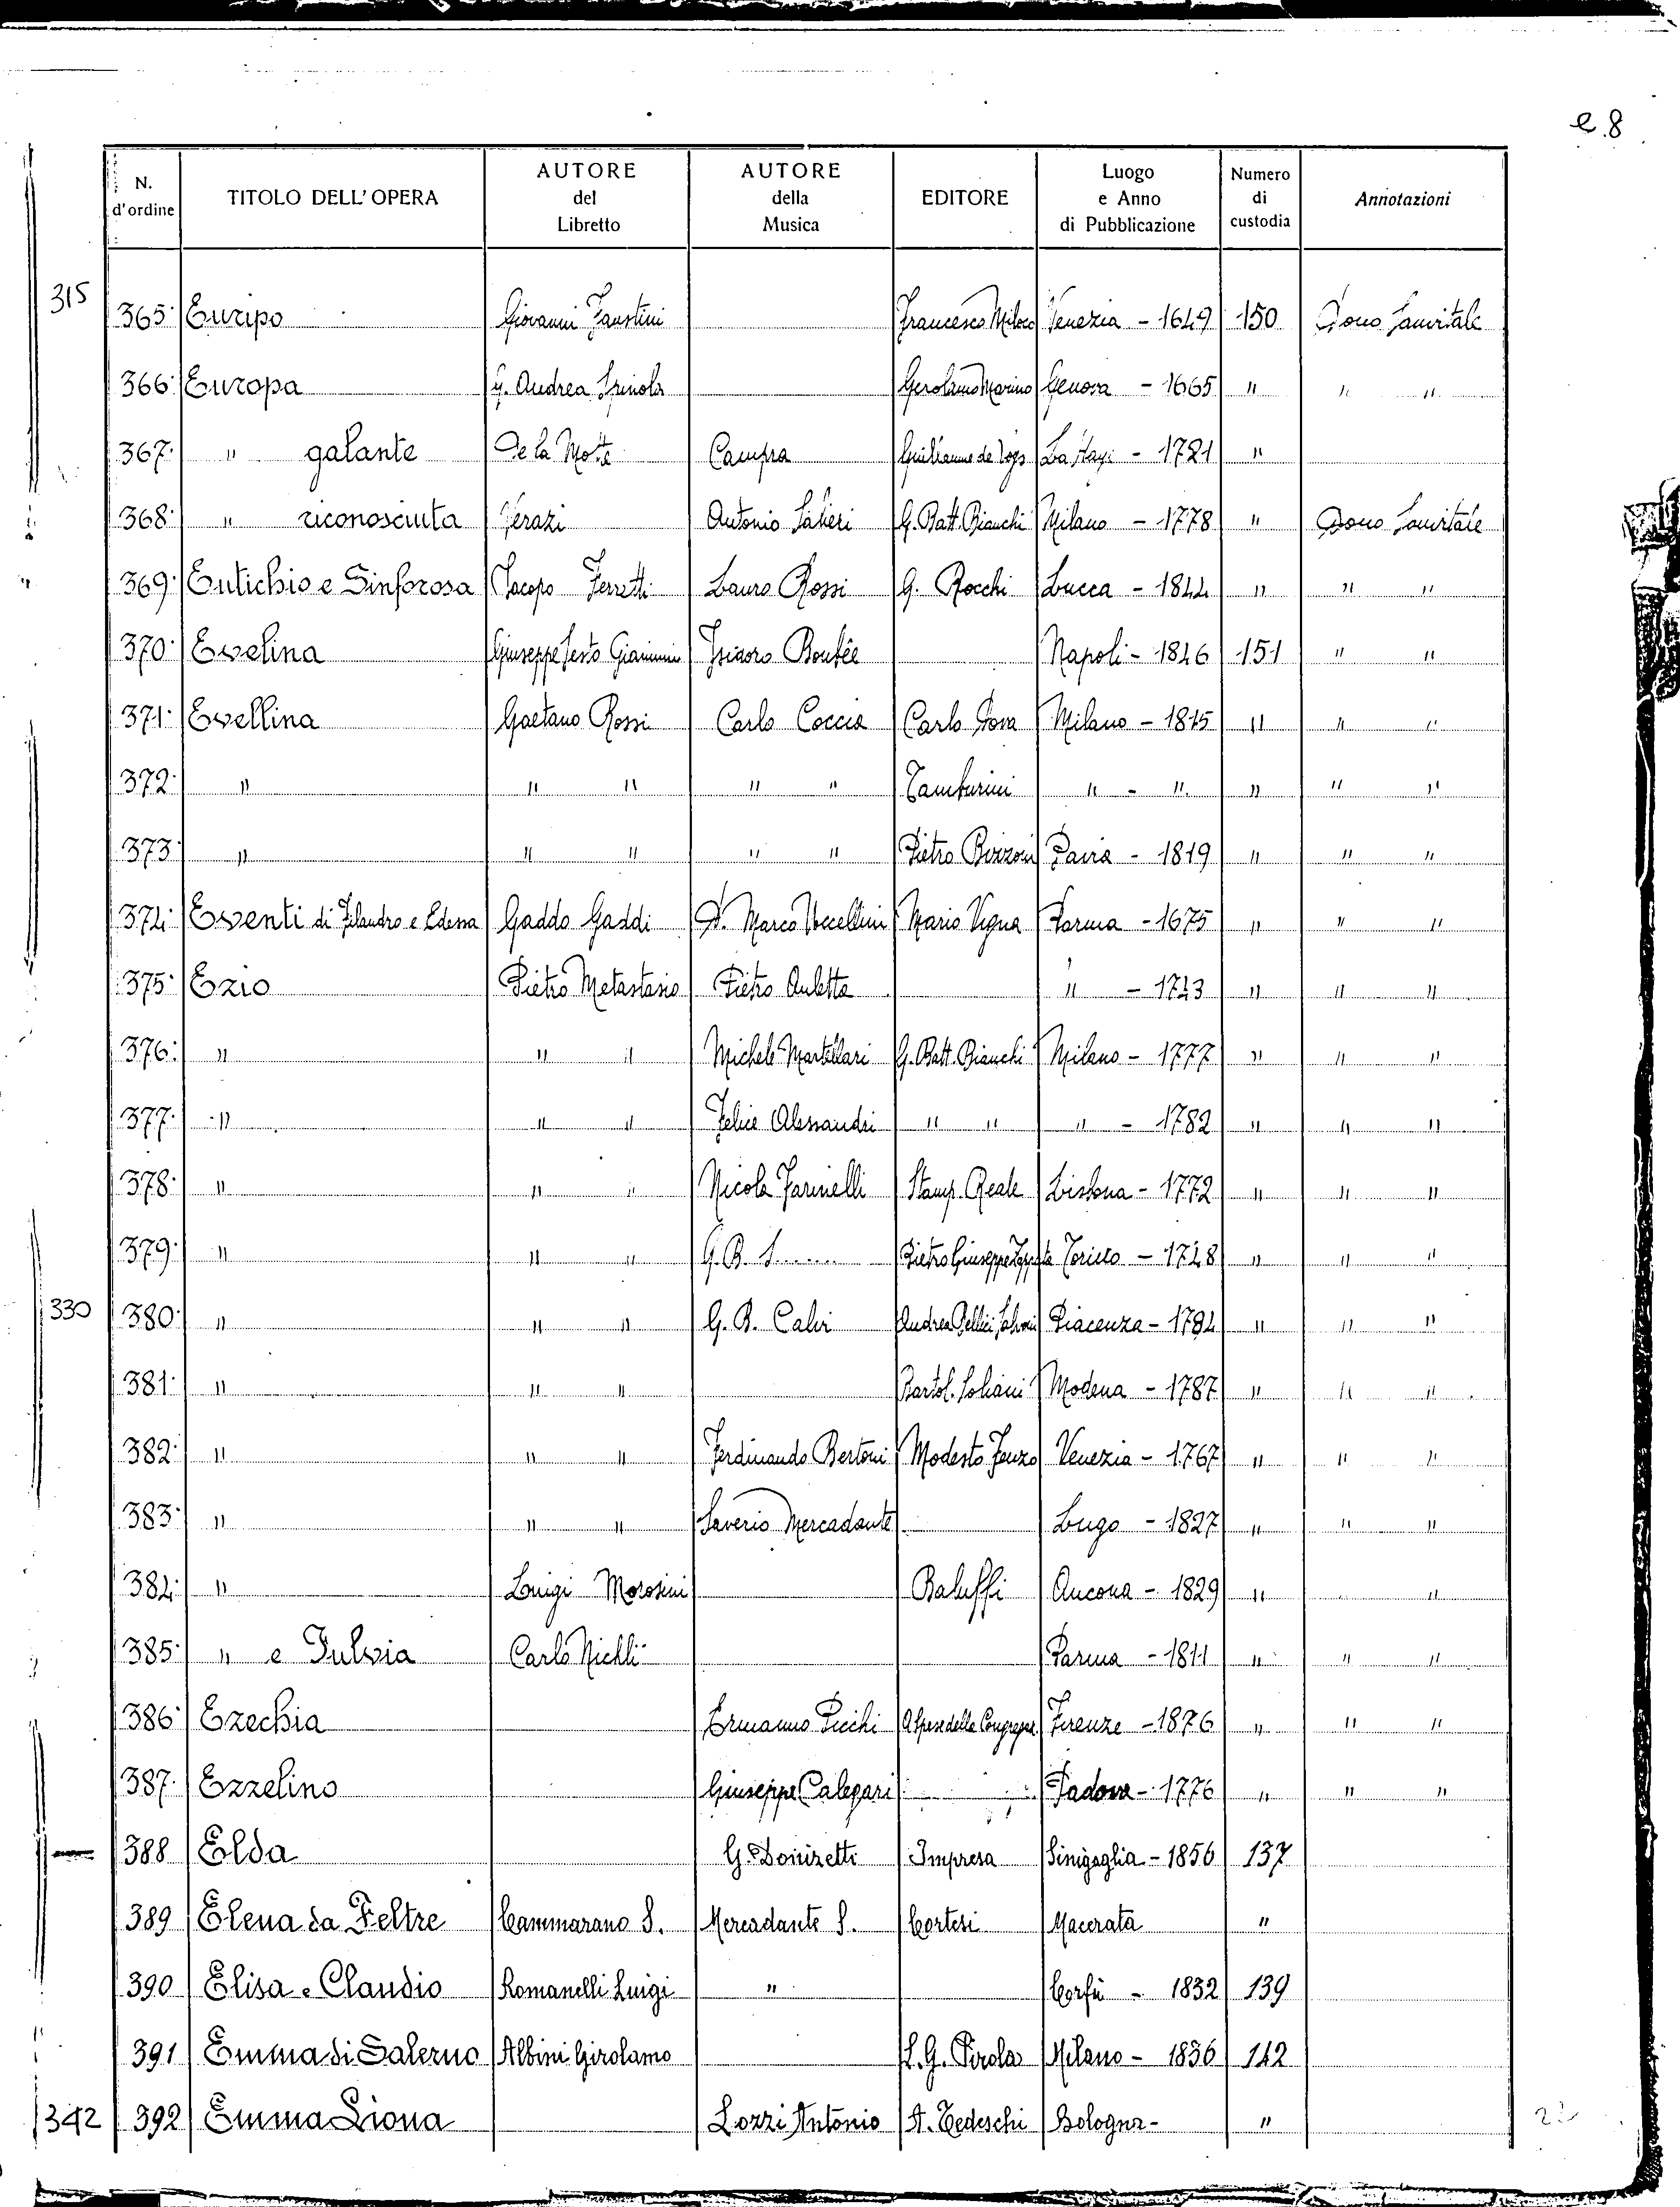 e.8
N. d'ordine TITOLO DELL'OPERA AUTORE del Libretto AUTORE della Musica EDITORE Luogo e Anno di Pubblicazione Numero di custodia Annotazioni
315 365 Euripo Giovanni Faustini Francesco Miloco Venezia - 1649 150 Dono Sanvitale
366 Europa G. Andrea Spinola Gerolamo Marino Genova - 1665 " " "
367 " galante De la Motte Campra Guillaume de Voys La Haye - 1721 "
368 " riconosciuta Verazi Antonio Salieri G. Batt. Bianchi Milano - 1778 " Dono Sanvitale
369 Eutichio e Sinforosa Jacopo Ferretti Lauro Rossi G. Rocchi Lucca - 1844 " " "
370 Evelina Giuseppe Sesto Giannini Isidoro Boubée Napoli - 1846 151 " "
371 Evellina Gaetano Rossi Carlo Coccia Carlo Dova Milano - 1815 " " "
372 " " " " " Tamburini " - " " " "
373 " " " " " Pietro Bizzoni Pavia - 1819 " " "
374 Eventi di Filandro e Edessa Gaddo Gaddi D. Marco Uccellini Mario Vigna Parma - 1675 " " "
375 Ezio Pietro Metastasio Pietro Auletta " - 1743 " " "
376 " " " Michele Mortellari G. Batt. Bianchi Milano - 1777 " " "
377 " " " Felice Alessandri " " " - 1782 " " "
378 " " " Nicola Jarinelli Stamp. Reale Lisbona - 1772 " " "
379 " " " G. B. L....... Pietro Giuseppe Zappata Torino - 1748 " " "
330 380 " " " G. B. Calvi Andrea Bellici Salvoni Piacenza - 1784 " " "
381 " " " Bartol. Soliani Modena - 1787 " " "
382 " " " Ferdinando Bertoni Modesto Fenzo Venezia - 1767 " " "
383 " " " Saverio Mercadante Lugo - 1827 " " "
384 " Luigi Morosini Baluffi Ancona - 1829 " "
385 " e Fulvia Carlo Nichli Parma - 1811 " " "
386 Ezechia Ermanno Picchi A spese della Congregne Firenze - 1876 " " "
387 Ezzelino Giuseppe Calegari Padova - 1776 " " "
388 Elda G. Donizetti Impresa Sinigaglia - 1856 137
389 Elena da Feltre Cammarano S. Mercadante S. Cortesi Macerata "
390 Elisa e Claudio Romanelli Luigi " Corfù - 1832 139
391 Emma di Salerno Albini Girolamo L. G. Pirola Milano - 1836 142
342 392 Emma Liona Lozzi Antonio A. Tedeschi Bologna - "